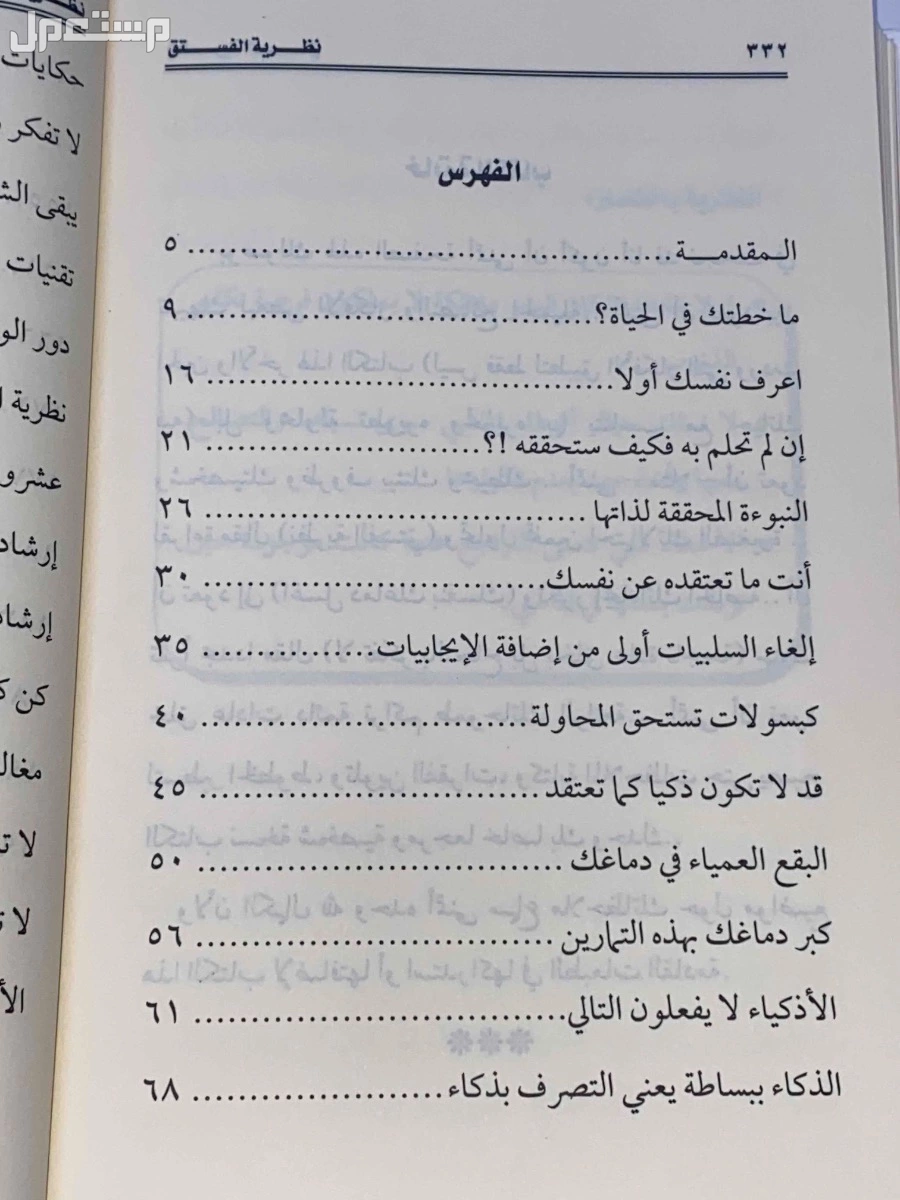 مستعمل
٣٣٢ نظرية الفستق
الفهرس
المقدمة ٥
ما خطتك في الحياة؟ ٩
اعرف نفسك أولا ١٦
إن لم تحلم به فكيف ستحققه !؟ ٢١
النبوءة المحققة لذاتها ٢٦
أنت ما تعتقده عن نفسك ٣٠
إلغاء السلبيات أولى من إضافة الإيجابيات ٣٥
كبسولات تستحق المحاولة ٤٠
قد لا تكون ذكيا كما تعتقد ٤٥
البقع العمياء في دماغك ٥٠
كبر دماغك بهذه التمارين ٥٦
الأذكياء لا يفعلون التالي ٦١
الذكاء ببساطة يعني التصرف بذكاء ٦٨
حكايات
لا تفكر
يبقى
تقنيات
دور
نظرية
كن
لا
لا